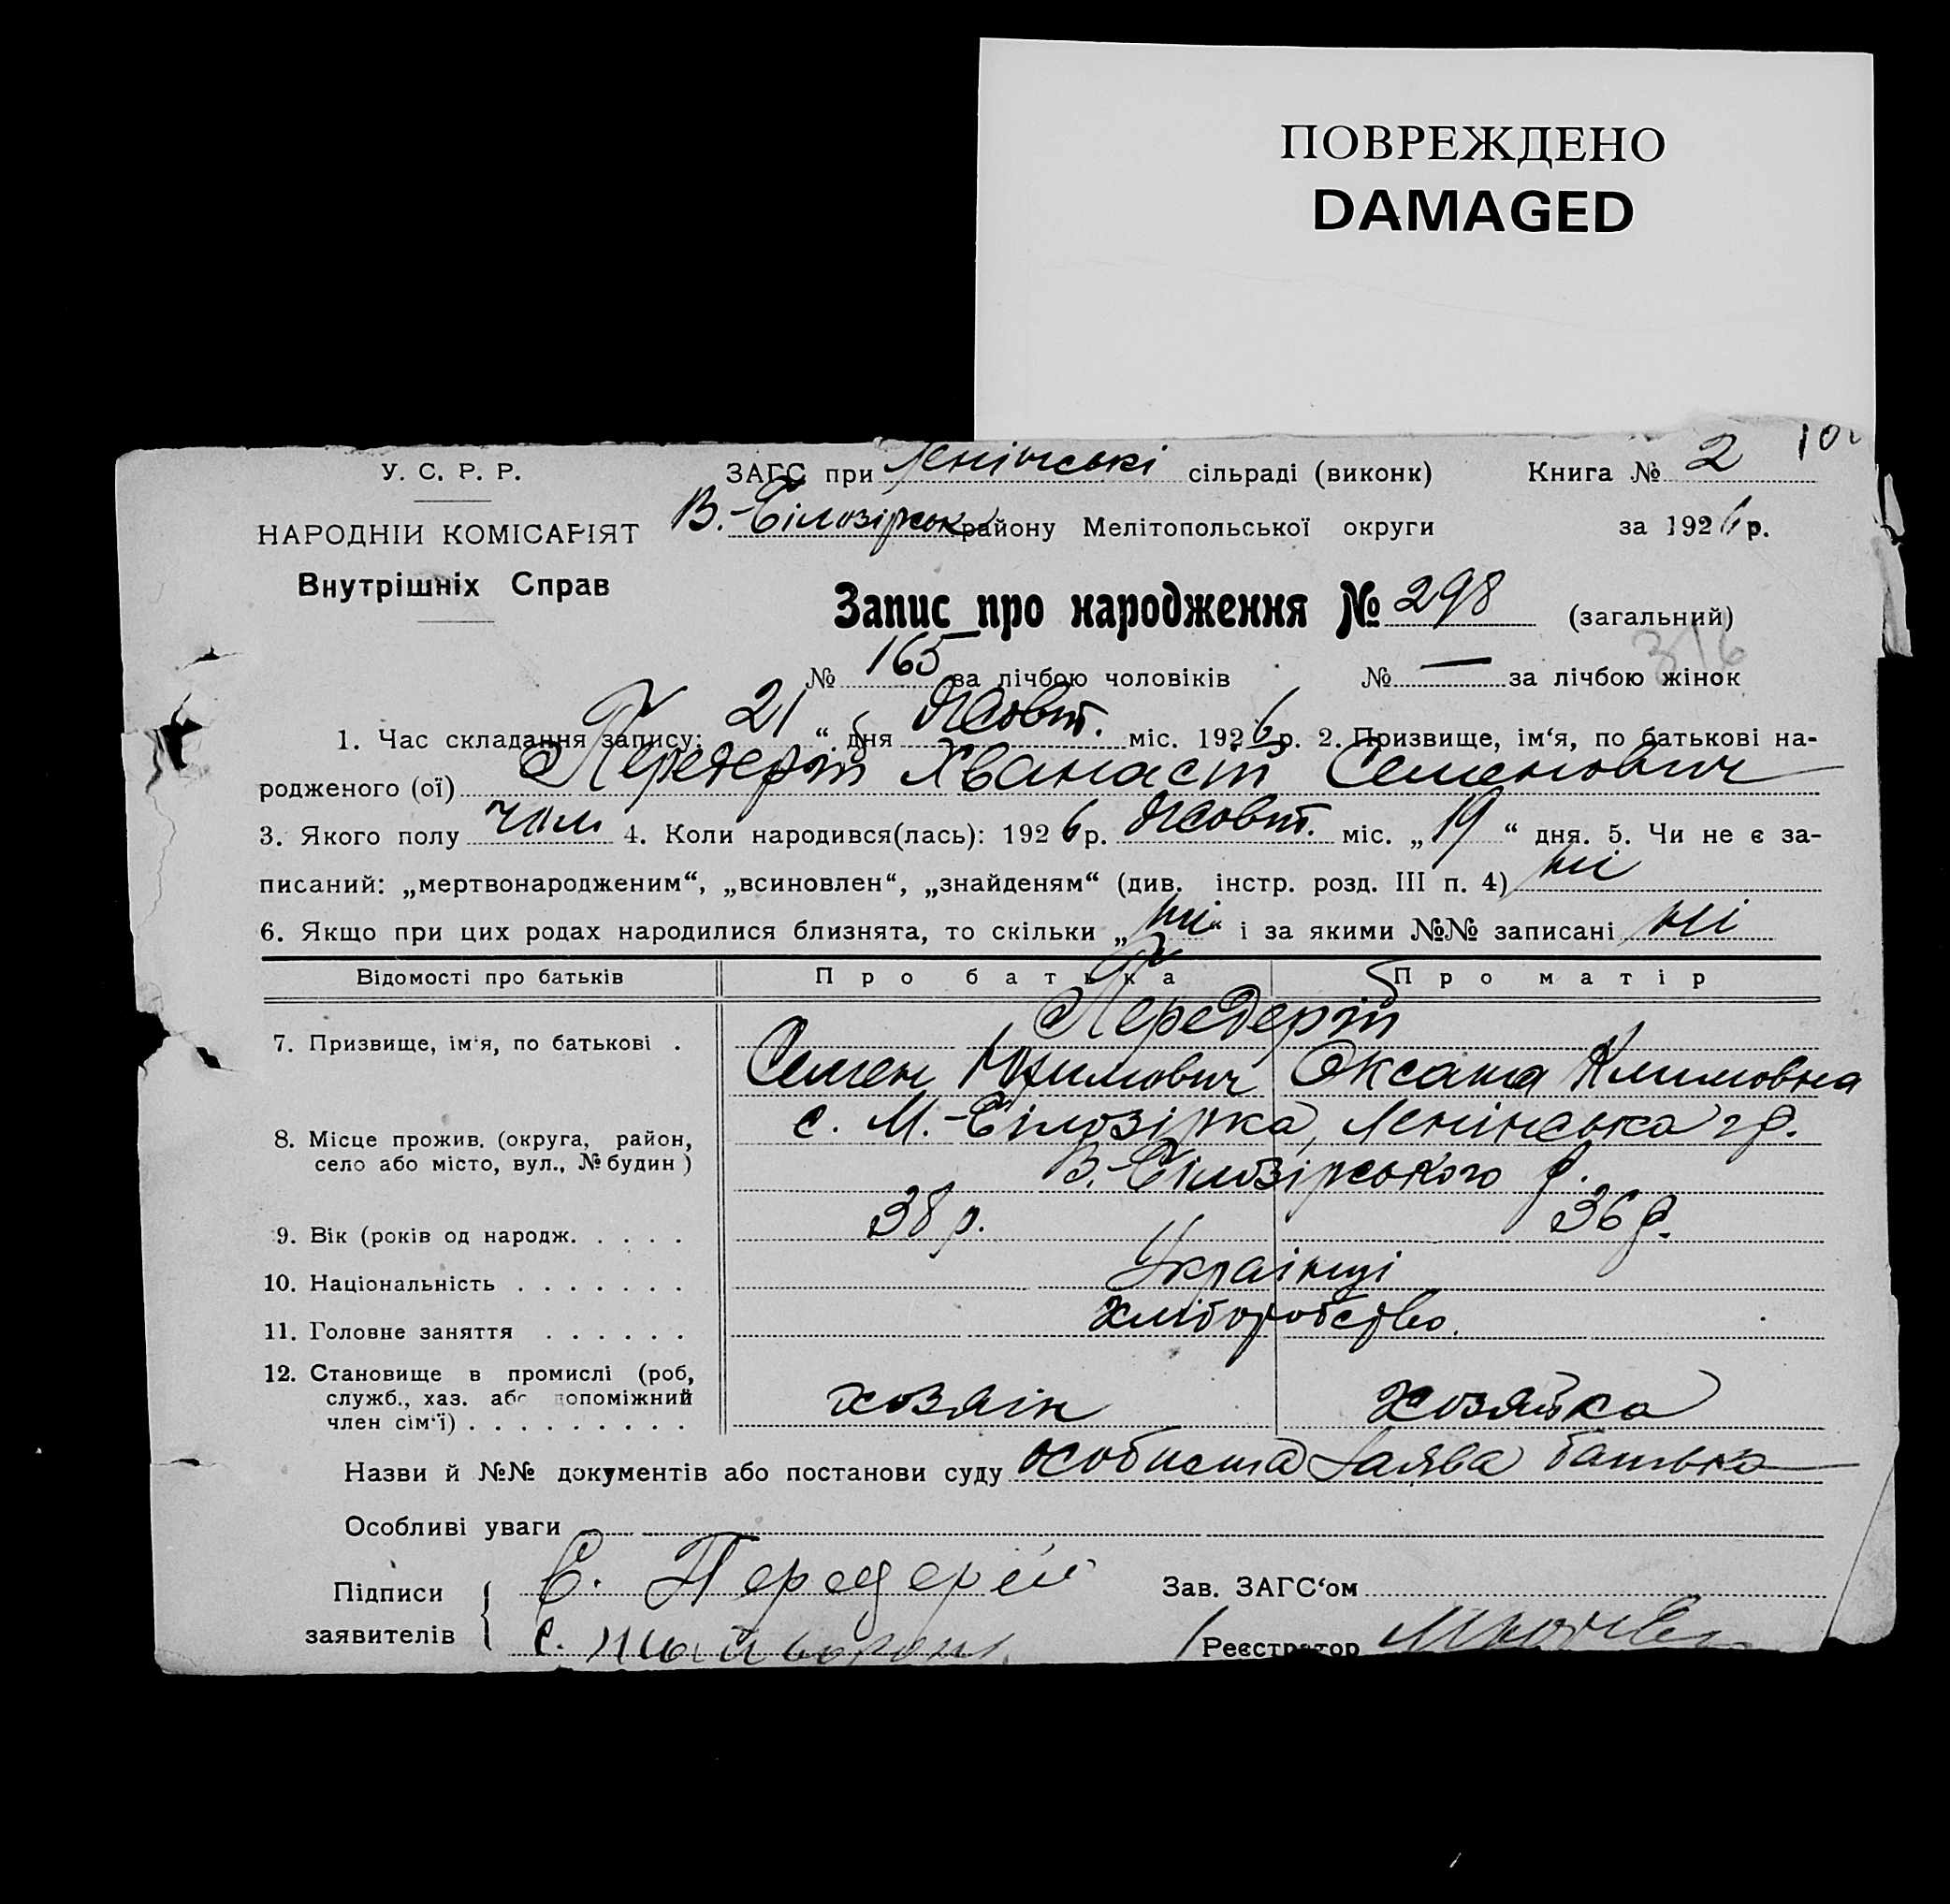 ПОВРЕЖДЕНО
DAMAGED
У. С. Р. Р.
НАРОДНІЙ КОМІСАРІЯТ
Внутрішніх Справ
ЗАГС при Ленінські сільраді (виконк)
В.-Білозірськ району Мелітопольської округи
Книга № 2
за 1926 р.
Запис про народження № 298 (загальний)
316
№ 165 за лічбою чоловіків № — за лічбою жінок
1. Час складання запису: 21 “ дня Жовт. міс. 1926 р. 2. Призвище, ім‘я, по батькові на-
родженого (ої) Передерій Хванасій Семенович
3. Якого полу чол 4. Коли народився(лась): 1926 р. Жовт. міс. „19“ дня. 5. Чи не є за-
писаний: „мертвонародженим“, „всиновлен“, „знайденям“ (див. інстр. розд. III п. 4) ні
6. Якщо при цих родах народилися близнята, то скільки „ні“ і за якими №№ записані ні
Відомості про батьків Про батька Про матір
Передерій
7. Призвище, ім‘я, по батькові .
Семен Юхимович Оксана Климовна
с. М.-Білозірка, Ленінська гр.
8. Місце прожив. (округа, район,
село або місто, вул., № будин)
В.-Білозірського р.
9. Вік (років од народж. . . . . 38 р. 36 р.
10. Національність . . . . . . . Українці
11. Головне заняття . . . . . . хліборобство.
12. Становище в промислі (роб,
служб., хаз. або допоміжний
член сім‘ї) . . . . . . . . . хозяін хозяйка
Назви й №№ документів або постанови суду особиста заява батька
Особливі уваги
Підписи
заявителів
С. Передерій
Зав. ЗАГС‘ом
Реєстратор